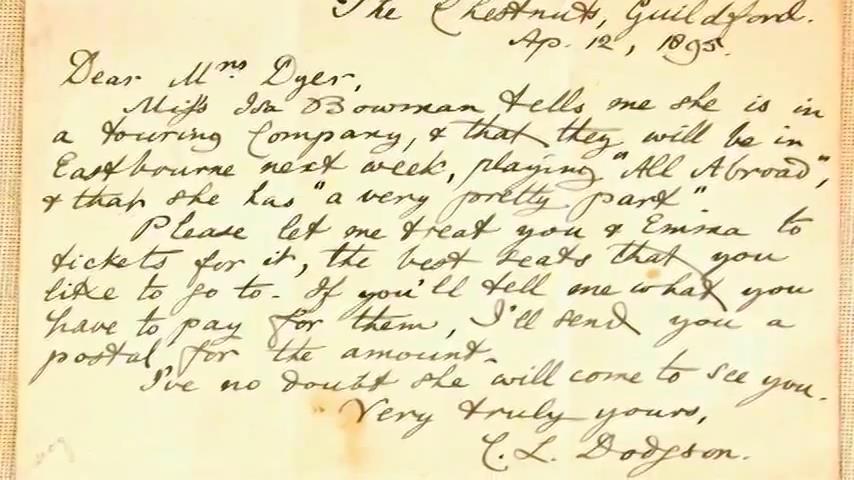 The Chestnuts, Guildford.
Ap. 12, 1895.
Dear Mrs Dyer,
Miss Isa Bowman tells me she is in
a touring Company, & that they will be in
Eastbourne next week, playing "All Abroad",
& that she has "a very pretty part"
Please let me treat you & Emma to
tickets for it, the best seats that you
like to go to. If you'll tell me what you
have to pay for them, I'll send you a
postal for the amount.
I've no doubt she will come to see you.
Very truly yours,
C. L. Dodgson.